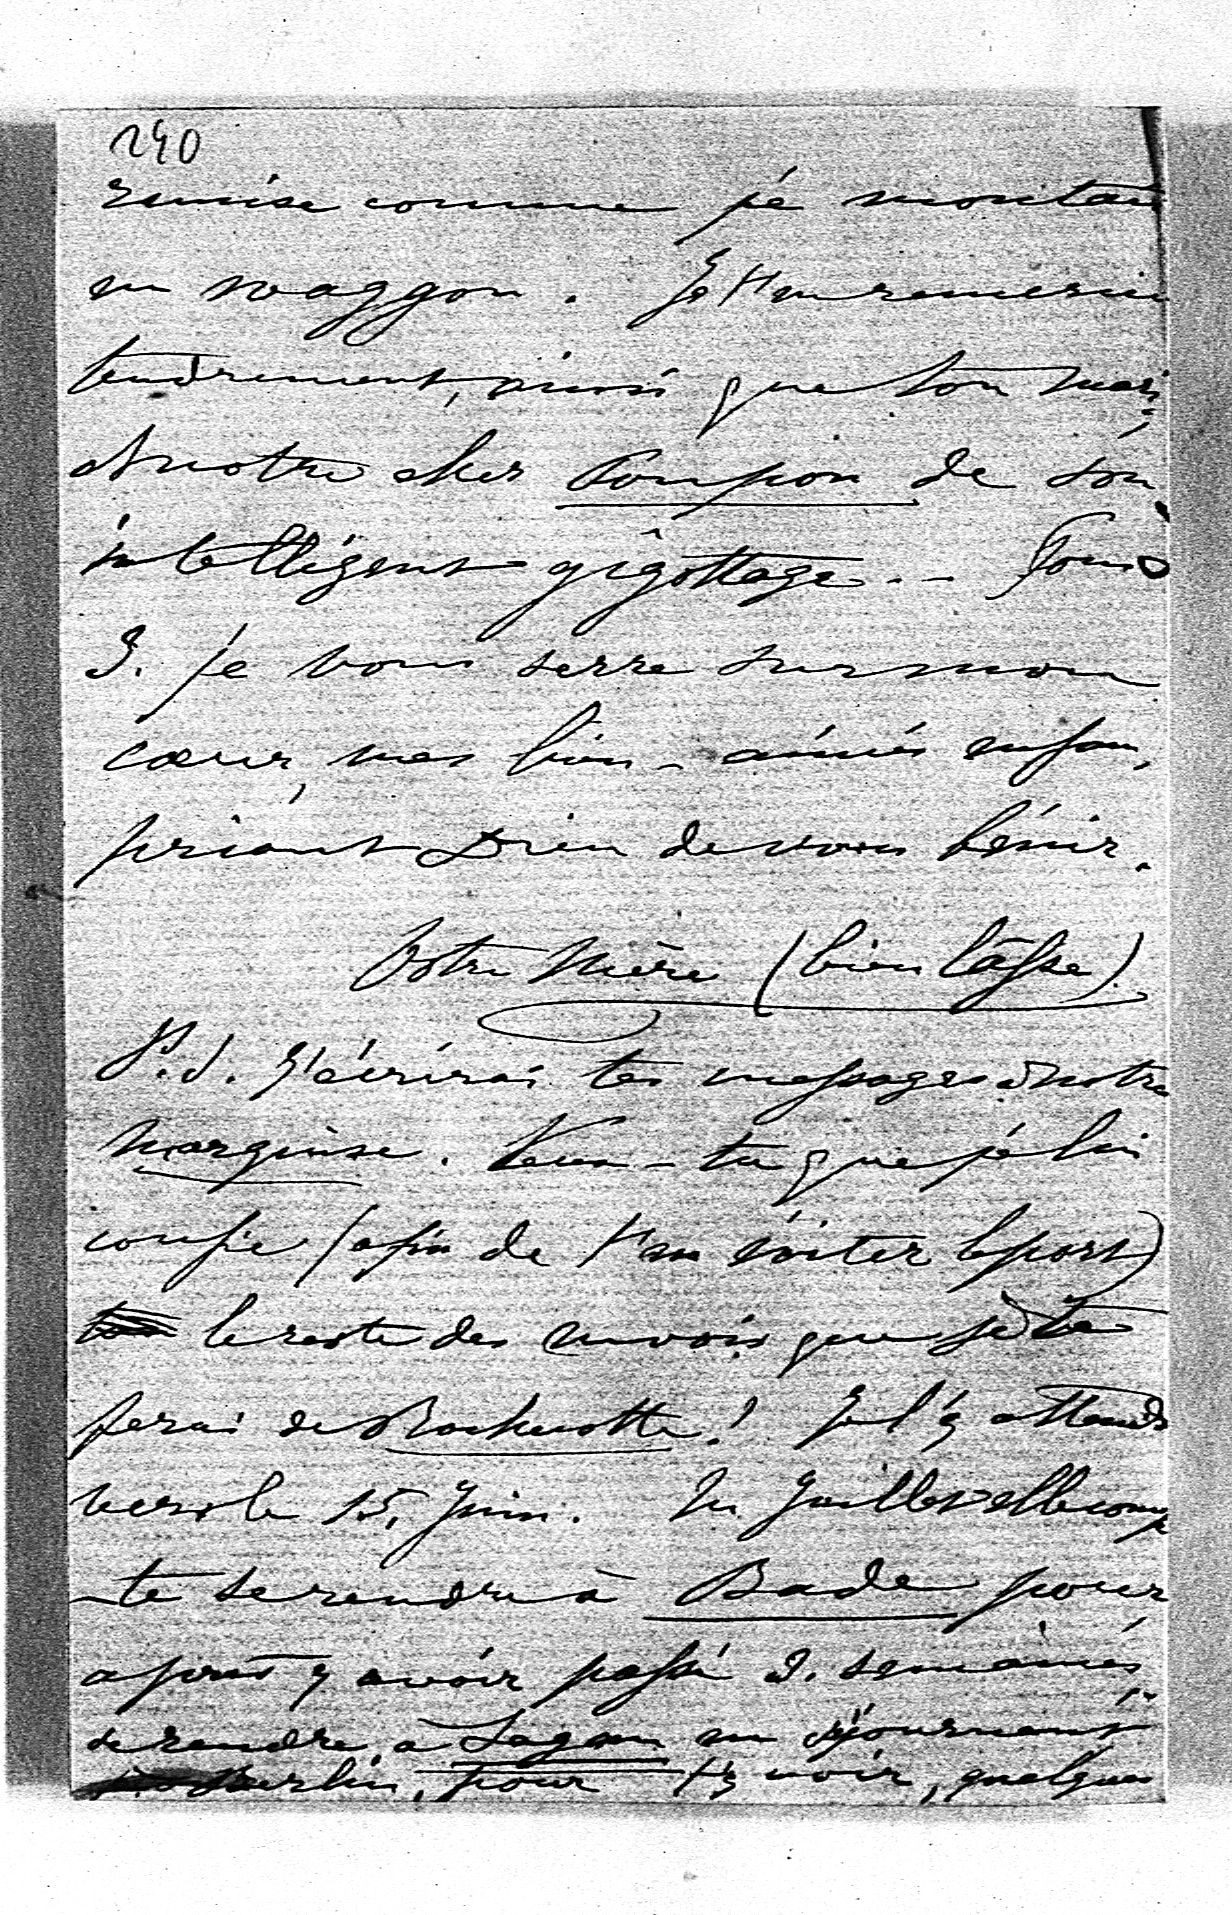 240
remise comme je montais
en waggon. Je t'en remercie
tendrement, ainsi que ton mari
et notre cher Poupon de son
intelligent gigottage... Tous
3. je vous serre sur mon
cœur, mes bien-aimés enfans,
priant Dieu de vous bénir.
Votre Mère (bien lâsse).
P.S. J'écrirai tes messages à notre
Marquise. Veux-tu que je lui
confie (afin de t'en éviter le port)
le reste des envois que je te
ferai de Rochecotte! Je l'y attends
vers le 15, Juin. En Juillet elle comp
-te se rendre à Bade pour
après y avoir passé 3. semaines,
se rendre à Sagan en séjournant
Berlin, pour t'y voir, quelques